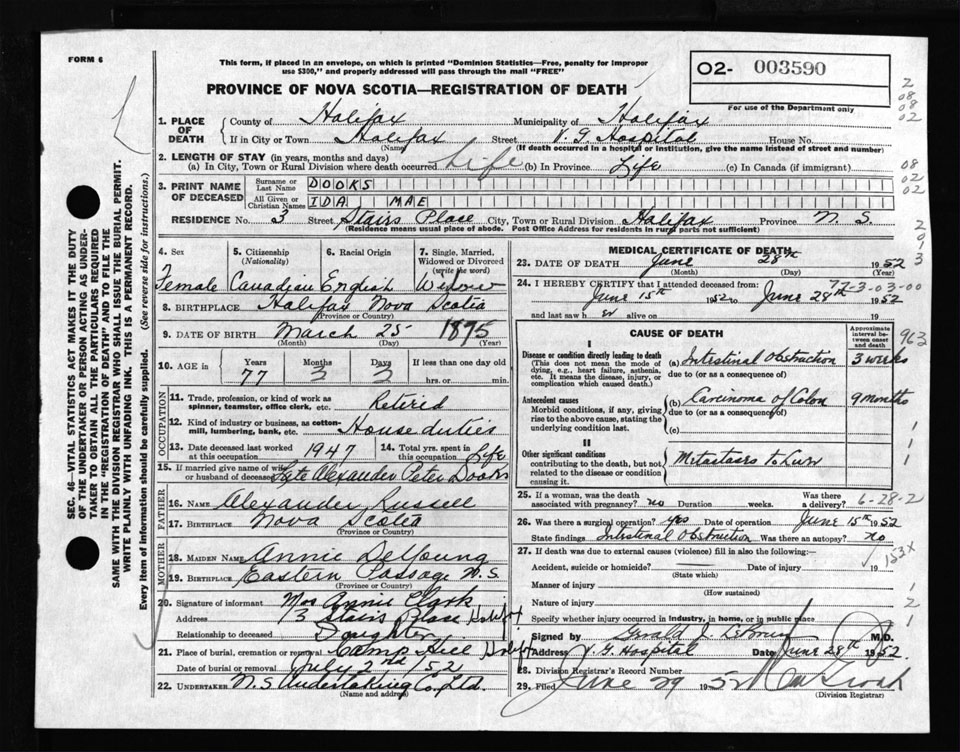 FORM 6
This form, if placed in an envelope, on which is printed "Dominion Statistics—Free, penalty for improper
use $300," and properly addressed will pass through the mail "FREE"
02- 003590
For use of the Department only
PROVINCE OF NOVA SCOTIA—REGISTRATION OF DEATH
1. PLACE OF DEATH County of Halifax Municipality of Halifax
If in City or Town Halifax Street V. G. Hospital House No.
(Name) (If death occurred in a hospital or institution, give the name instead of street and number)
2. LENGTH OF STAY (in years, months and days)
(a) In City, Town or Rural Division where death occurred Life (b) In Province Life (c) In Canada (if immigrant)
3. PRINT NAME OF DECEASED Surname or Last Name DOOKS
All Given or Christian Names IDA MAE
RESIDENCE No. 3 Street Stairs Place City, Town or Rural Division Halifax Province N. S.
(Residence means usual place of abode. Post Office Address for residents in rural parts not sufficient)
4. Sex Female
5. Citizenship (Nationality) Canadian
6. Racial Origin English
7. Single, Married, Widowed or Divorced (write the word) Widow
8. BIRTHPLACE Halifax Nova Scotia
(Province or Country)
9. DATE OF BIRTH March 25 1875
(Month) (Day) (Year)
10. AGE in Years 77 Months 3 Days 3 If less than one day old
hrs. or min.
OCCUPATION
11. Trade, profession, or kind of work as spinner, teamster, office clerk, etc. Retired
12. Kind of industry or business, as cotton-mill, lumbering, bank, etc. House duties
13. Date deceased last worked at this occupation 1947
14. Total yrs. spent in this occupation Life
15. If married give name of wife or husband of deceased Late Alexander Peter Dooks
FATHER
16. NAME Alexander Russell
17. BIRTHPLACE Nova Scotia
(Province or Country)
MOTHER
18. MAIDEN NAME Annie DeYoung
19. BIRTHPLACE Eastern Passage N.S.
(Province or Country)
20. Signature of informant Mrs Annie Clark
Address 3 Stairs Place Halifax
Relationship to deceased Daughter
21. Place of burial, cremation or removal Camp Hill Halifax
Date of burial or removal July 2nd /52
22. UNDERTAKER N.S. Undertaking Co. Ltd.
(Name and address)
MEDICAL CERTIFICATE OF DEATH
23. DATE OF DEATH June 28th 1952
(Month) (Day) (Year)
24. I HEREBY CERTIFY that I attended deceased from:
June 15th 1952 to June 28th 1952
and last saw her alive on 19
77-3-03-00
CAUSE OF DEATH
Approximate interval between onset and death
I
Disease or condition directly leading to death (a) Intestinal Obstruction 3 weeks
(This does not mean the mode of dying, e.g., heart failure, asthenia, etc. It means the disease, injury, or complication which caused death.)
due to (or as a consequence of)
Antecedent causes (b) Carcinoma of Colon 9 months
Morbid conditions, if any, giving rise to the above cause, stating the underlying condition last.
due to (or as a consequence of)
(c)
II
Other significant conditions contributing to the death, but not related to the disease or condition causing it. Metastases to Liver
25. If a woman, was the death associated with pregnancy? no Duration weeks. Was there a delivery?
6-28-2
26. Was there a surgical operation? yes Date of operation June 15th 1952
State findings Intestinal Obstruction Was there an autopsy? no
153X
27. If death was due to external causes (violence) fill in also the following:—
Accident, suicide or homicide? Date of injury 19
(State which)
Manner of injury
(How sustained)
Nature of injury
Specify whether injury occurred in industry, in home, or in public place
Signed by M.D.
Address V. G. Hospital Date June 28th 1952
28. Division Registrar's Record Number
29. Filed June 29 1952
(Division Registrar)
SEC. 46—VITAL STATISTICS ACT MAKES IT THE DUTY
OF THE UNDERTAKER OR PERSON ACTING AS UNDER-
TAKER TO OBTAIN ALL THE PARTICULARS REQUIRED
IN THE "REGISTRATION OF DEATH" AND TO FILE THE
SAME WITH THE DIVISION REGISTRAR WHO SHALL ISSUE THE BURIAL PERMIT.
WRITE PLAINLY WITH UNFADING INK. THIS IS A PERMANENT RECORD.
Every item of information should be carefully supplied. (See reverse side for instructions.)
2
08
08
02
08
02
02
2
0
9
3
963
1
1
1
2
1